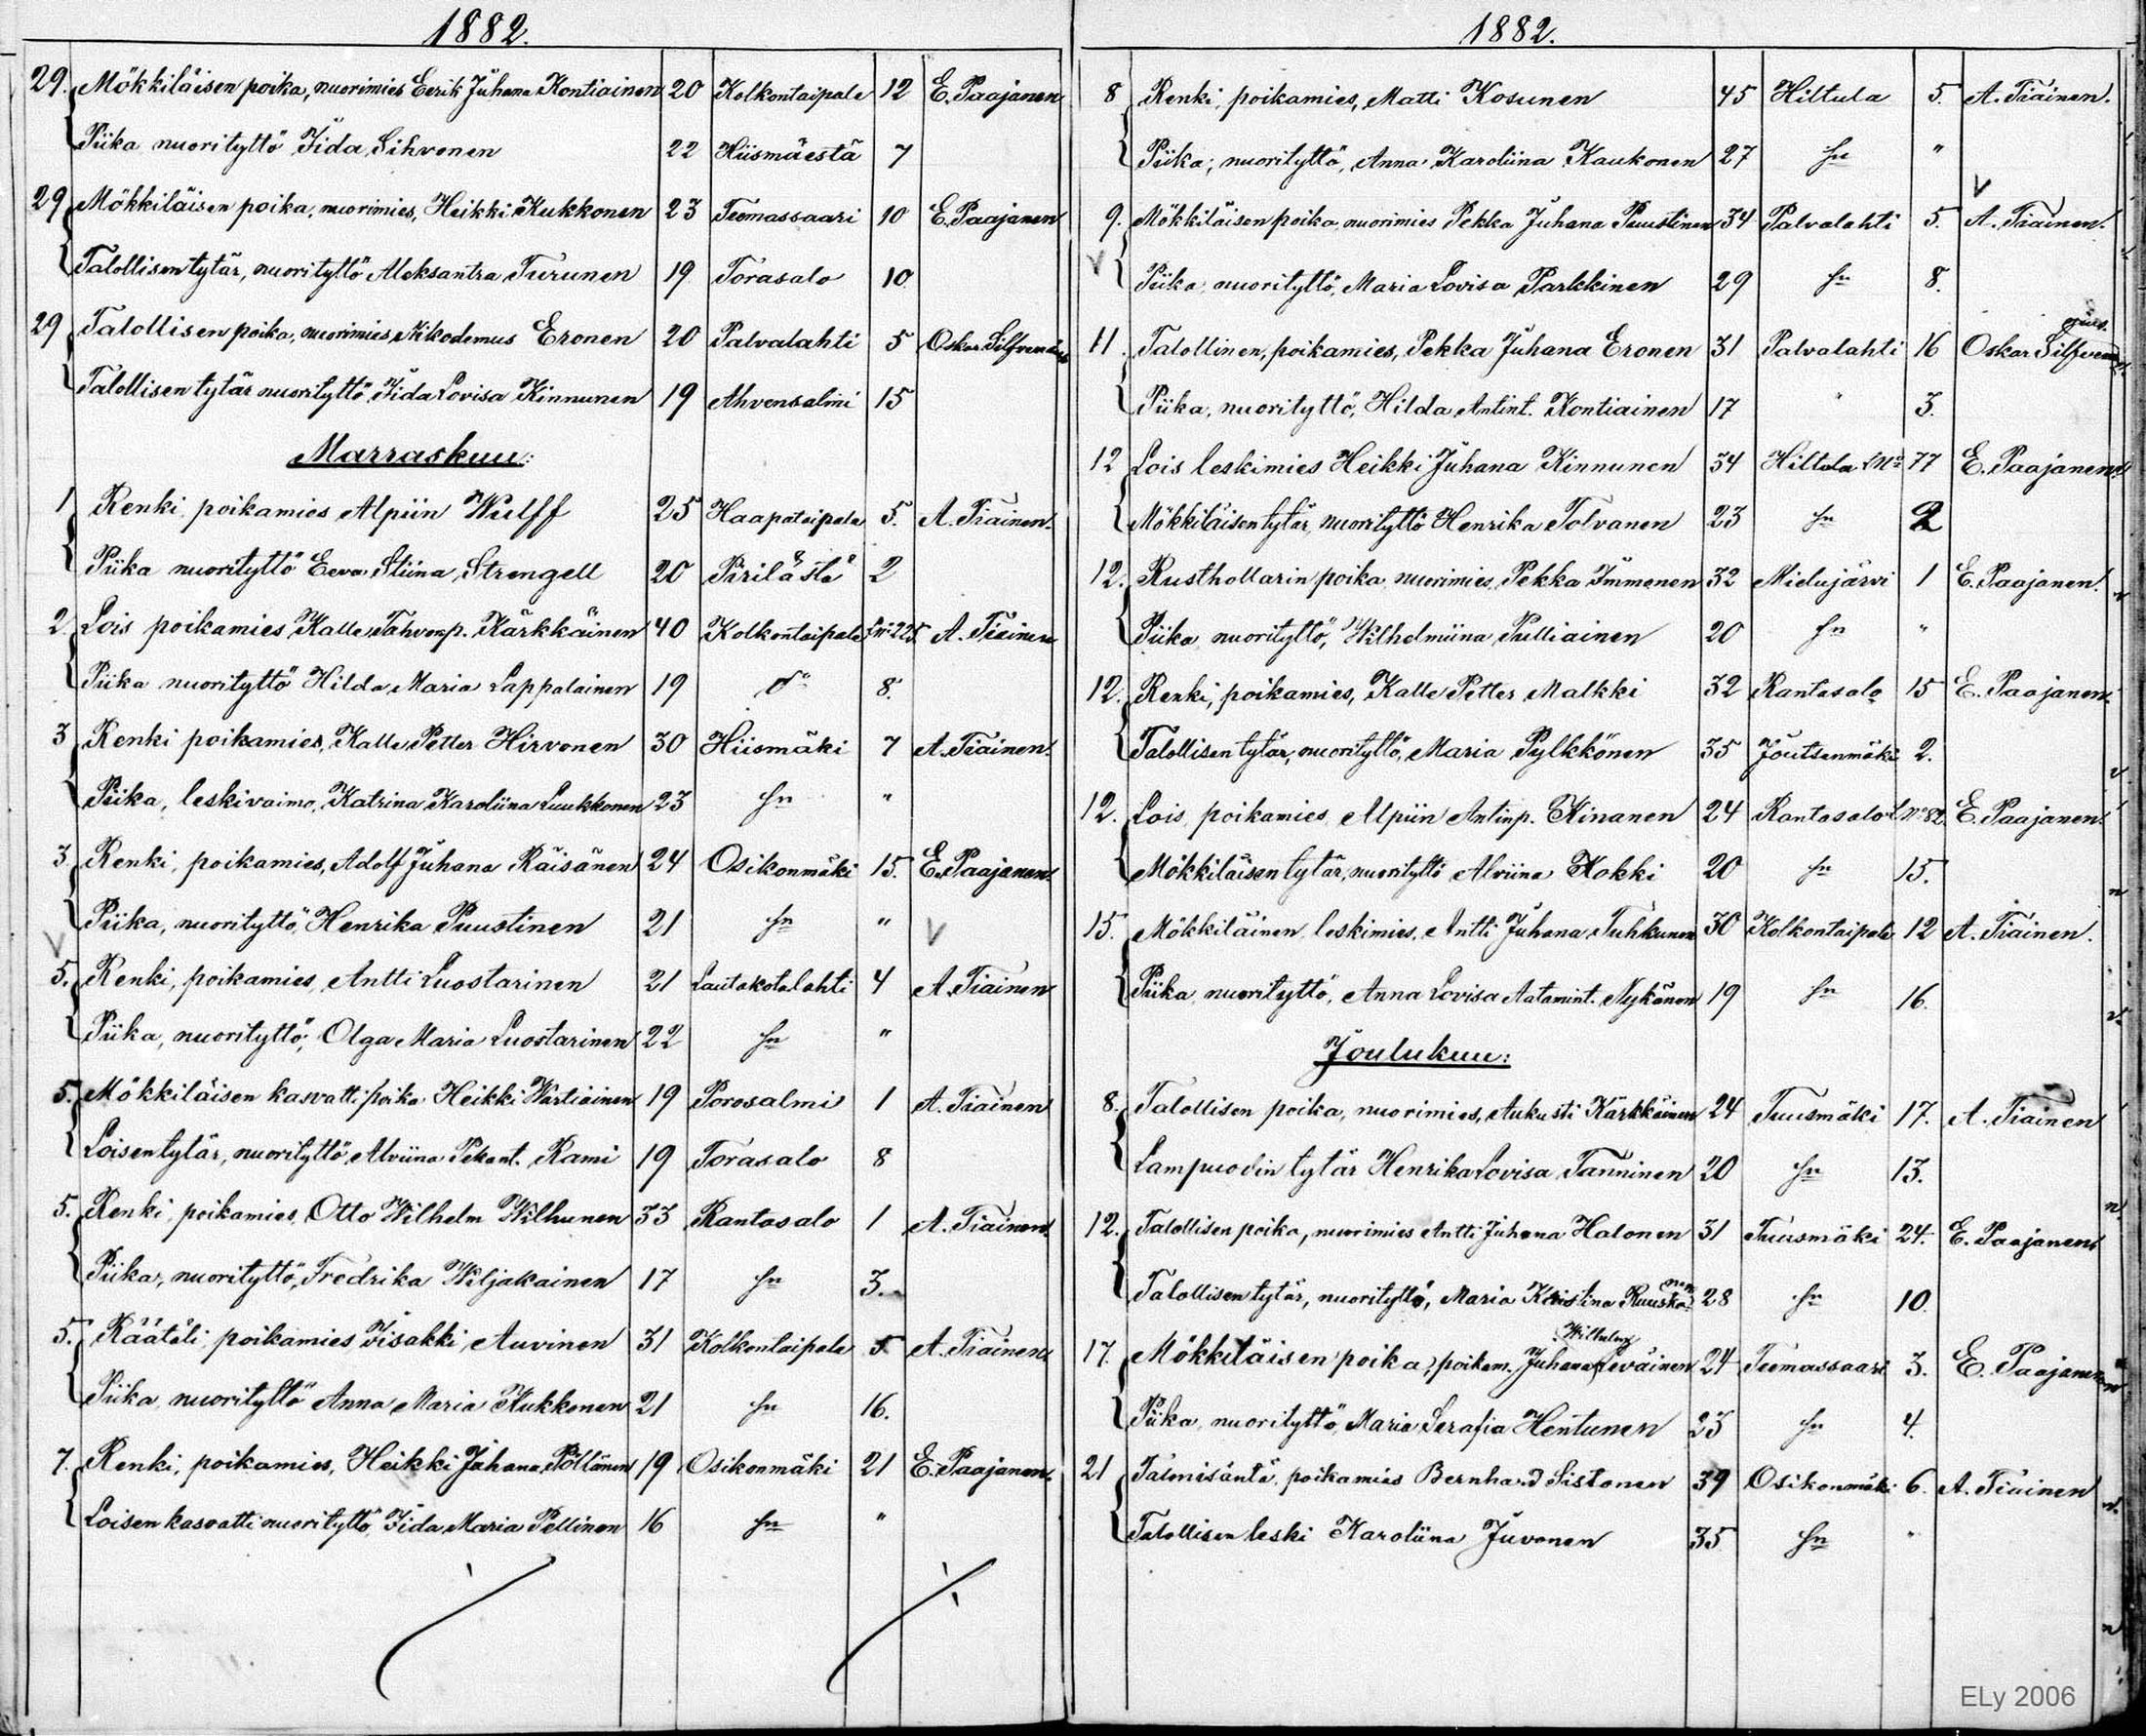 1882.
29. Mökkiläisen poika, nuorimies Eerik Juhana Kontiainen 20 Kolkontaipale 12 E. Paajanen
Piika nuorityttö Iida Sihvonen 22 Hiismäestä 7
29 Mökkiläisen poika, nuorimies, Heikki Kukkonen 23 Teemassaari 10 E. Paajanen
Talollisen tytär, nuorityttö Aleksantra Turunen 19 Torasalo 10
29 Talollisen poika, nuorimies Nikodemus Eronen 20 Palvalahti 5 Oskar
Talollisen tytär nuorityttö Iida Lovisa Kinnunen 19 Ahvensalmi 15
Marraskuu:
1 Renki, poikamies Alpiin Wulff 25 Haapataipale 5. A. Tiainen.
Piika nuorityttö Eeva Stiina Strengell 20 Pirilä 2
2. Lois poikamies Kalle Tahvonp. Kärkkäinen 40 Kolkontaipale A. Tiainen
Piika nuorityttö Hilda Maria Lappalainen 19 8.
3 Renki poikamies, Kalle Petter Hirvonen 30 Hiismäki 7 A. Tiainen.
Piika, leskivaimo, Katrina Karoliina Luukkonen 23 sn "
3 Renki, poikamies, Adolf Juhana Räisänen 24 Osikonmäki 15. E. Paajanen.
Piika, nuorityttö, Henrika Puustinen 21 sn "
5. Renki, poikamies, Antti Luostarinen 21 Lautakotalahti 4 A. Tiainen
Piika, nuorityttö, Olga Maria Luostarinen 22 sn "
5. Mökkiläisen kasvatti poika Heikki Wartiainen 19 Porosalmi 1 A. Tiainen
Loisen tytär, nuorityttö Alviina Pekant. Rami 19 Torasalo 8
5. Renki, poikamies, Otto Wilhelm Wilhunen 33 Rantasalo 1 A. Tiainen.
Piika, nuorityttö, Fredrika Wiljakainen 17 sn 3.
5. Räätäli poikamies Iisakki Auvinen 31 Kolkontaipale 5 A. Tiainen
Piika nuorityttö Anna Maria Kukkonen 21 sn 16.
7. Renki, poikamies, Heikki Juhana Pöllänen 19 Osikonmäki 21 E. Paajanen.
Loisen kasvatti nuorityttö, Iida Maria Pellinen 16 sn "
1882.
8 Renki, poikamies, Matti Kosunen 45 Hiltula 5. A. Tiainen.
Piika, nuorityttö, Anna Karoliina Kaukonen 27 sn "
9. Mökkiläisen poika, nuorimies Pekka Juhana Puustinen 34 Palvalahti 5. A. Tiainen.
Piika, nuorityttö, Maria Lovisa Parkkinen 29 sn 8.
11. Talollinen, poikamies, Pekka Juhana Eronen 31 Palvalahti 16 Oskar
Piika, nuorityttö, Hilda Antint. Kontiainen 17 " 3.
12 Lois leskimies Heikki Juhana Kinnunen 34 Hiltula 77 E. Paajanen.
Mökkiläisen tytär, nuorityttö Henrika Tolvanen 23 sn 2
12. Rusthollarin poika, nuorimies, Pekka Immonen 32 Mielujärvi 1 E. Paajanen.
Piika, nuorityttö, Wilhelmiina Pulliainen 20 sn "
12. Renki, poikamies, Kalle Petter Malkki 32 Rantasalo 15 E. Paajanen.
Talollisen tytär, nuorityttö, Maria Pylkkönen 35 Joutsenmäki 2.
12. Lois, poikamies, Alpiin Antinp. Kinanen 24 Rantasalo L No 82 E. Paajanen.
Mökkiläisen tytär, nuorityttö Alviina Kokki 20 sn 15.
15. Mökkiläinen leskimies, Antti Juhana Tuhkunen 30 Kolkontaipale 12 A. Tiainen.
Piika, nuorityttö, Anna Lovisa Aatamint. Nykänen 19 sn 16.
Joulukuu:
8. Talollisen poika, nuorimies, Aukusti Kärkkäinen 24 Tuusmäki 17. A. Tiainen
Lampuodin tytär Henrika Lovisa Tanninen 20 sn 13.
12. Talollisen poika, nuorimies Antti Juhana Halonen 31 Tuusmäki 24. E. Paajanen
Talollisen tytär, nuorityttö, Maria Kristina Ruuskanen 28 sn 10.
17. Mökkiläisen poika, poikam. Juhana Wilhelm Leväinen 24 Teemassaari 3. E. Paajanen
Piika, nuorityttö, Maria Serafia Hentunen 23 sn 4.
21 poikamies Bernhard Sistonen 39 Osikonmäki 6. A. Tiainen
Talollisen leski Karoliina Juvonen 35 sn "
ELy 2006